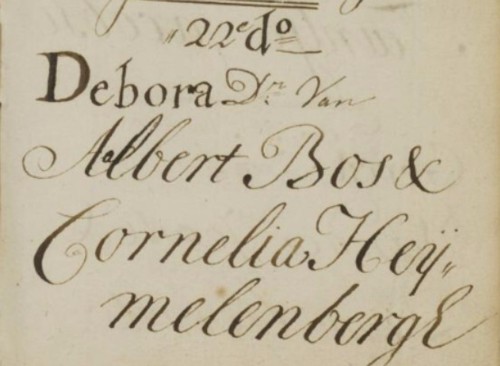 "22e do
Debora Dr. Van
Albert Bos &
Cornelia Heÿ„
melenbergh